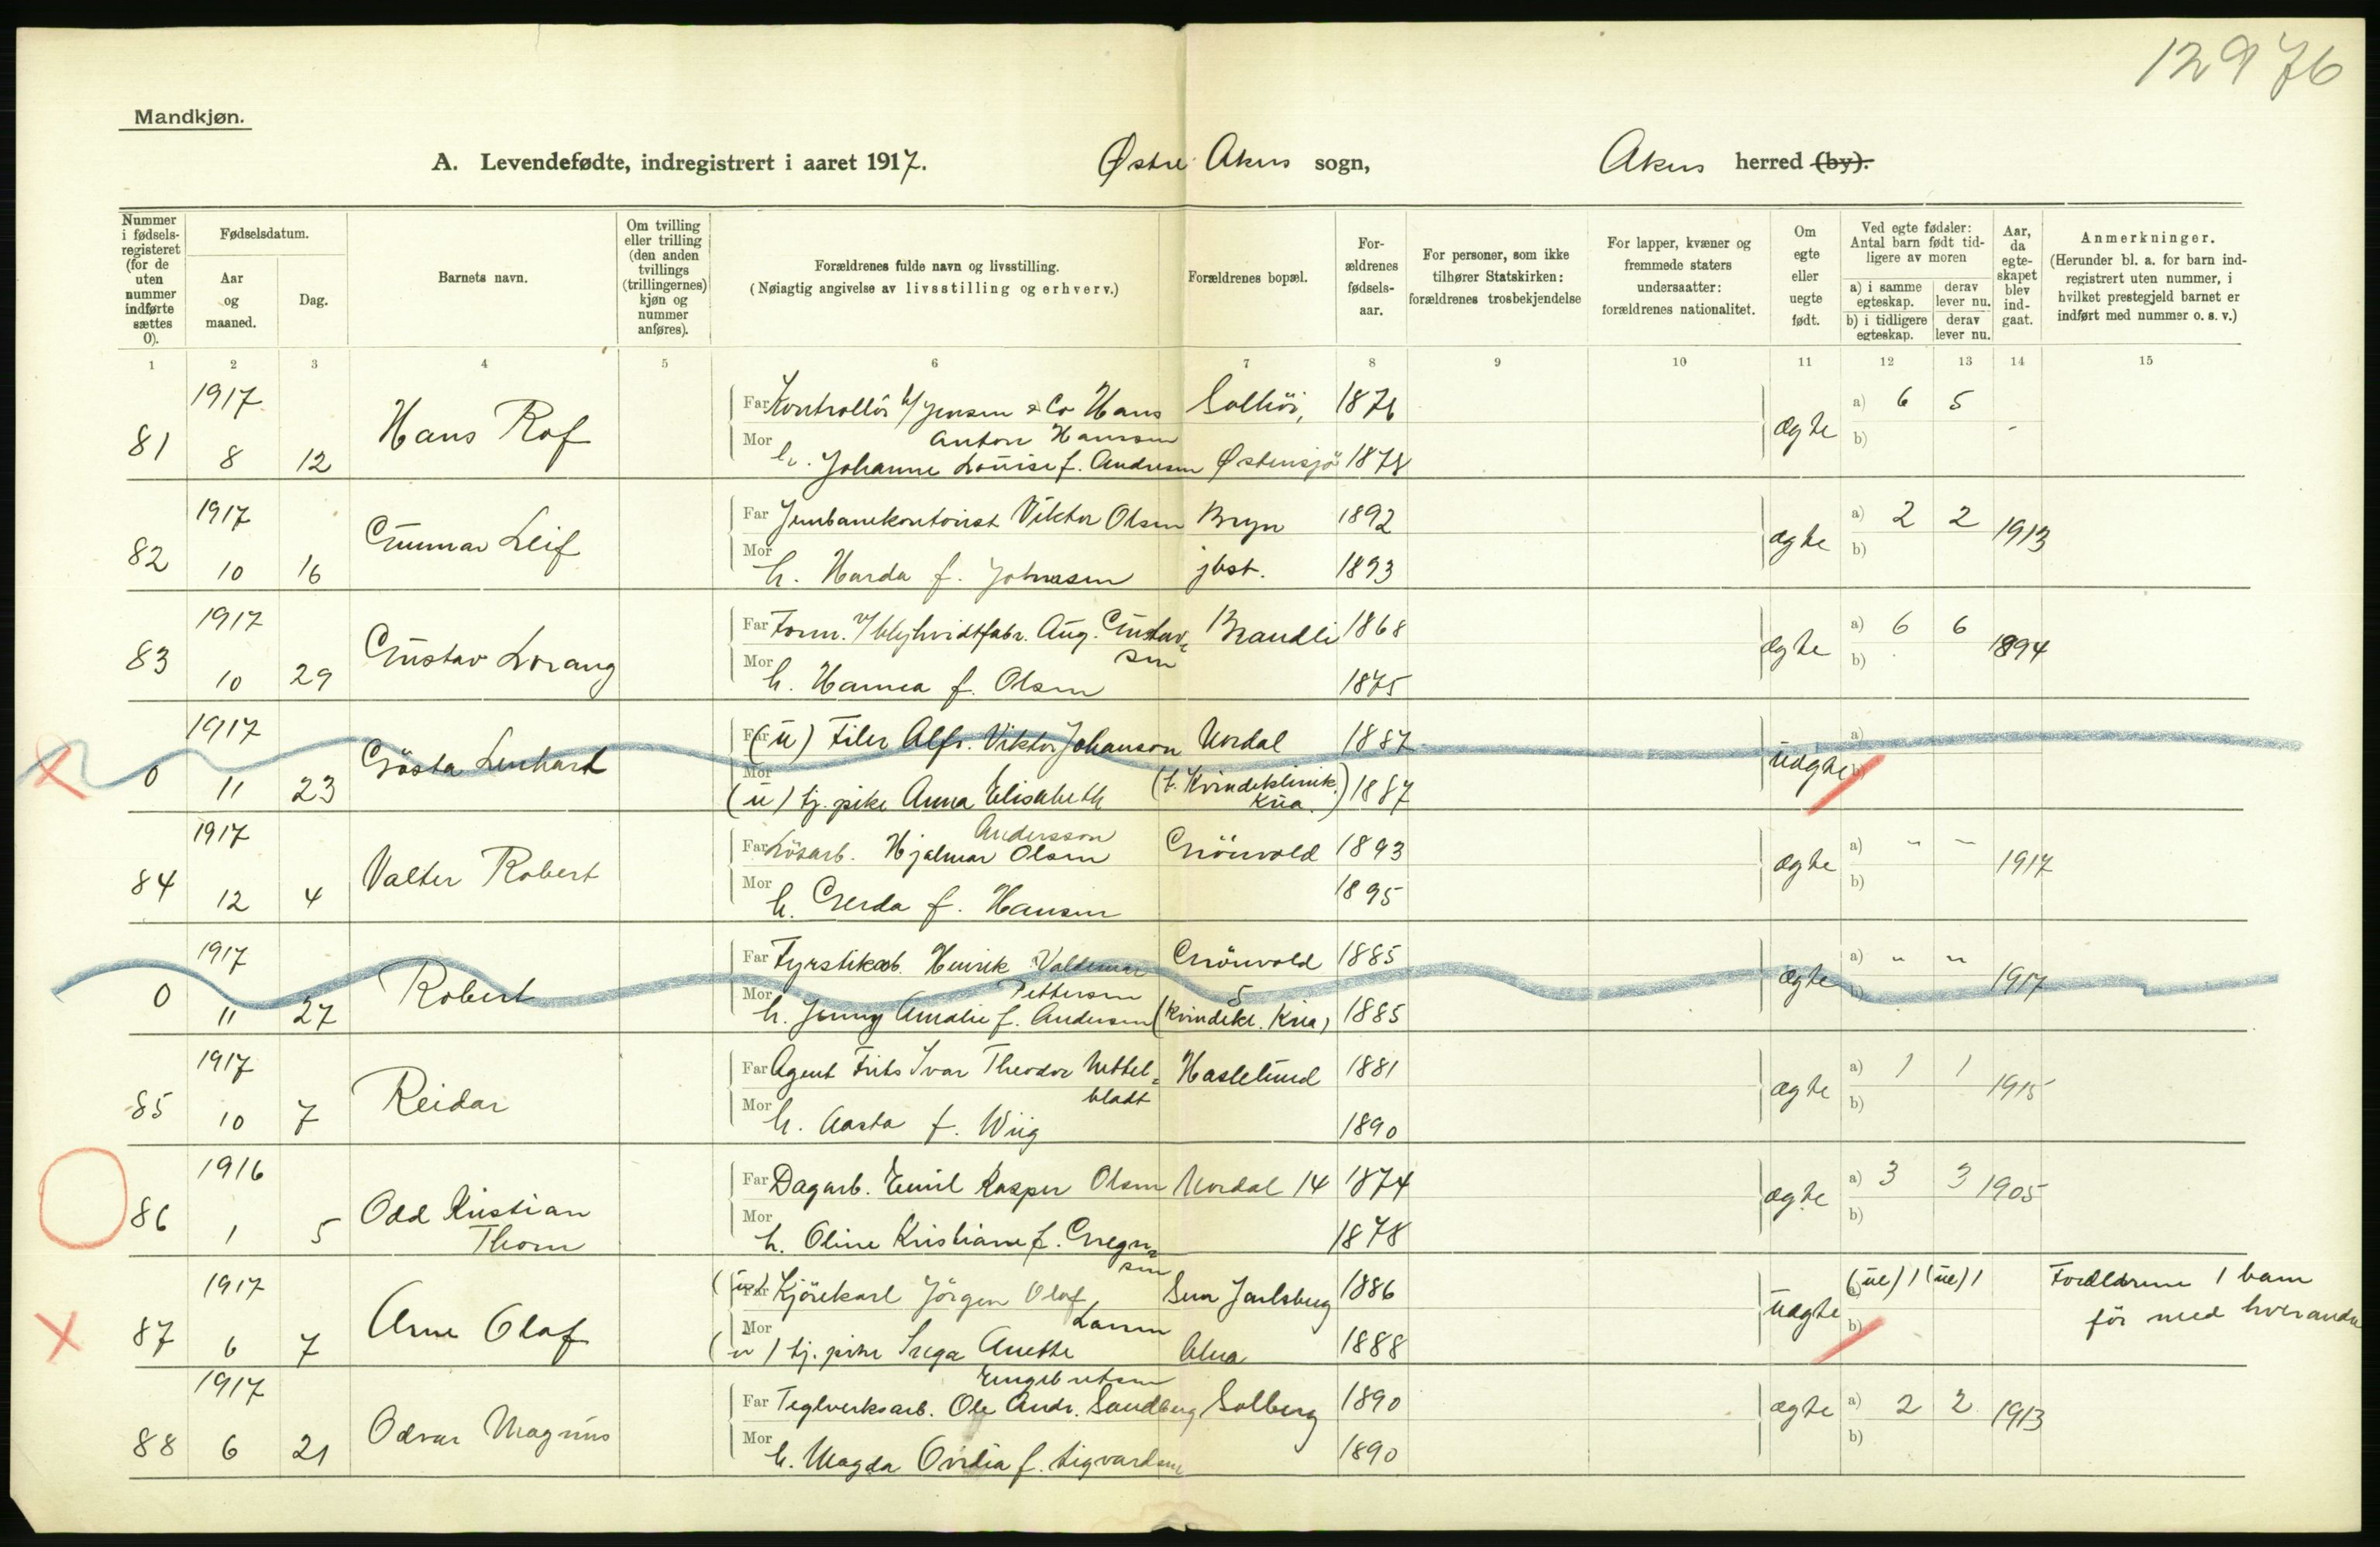 12976
Mandkjøn.
A. Levendefødte, indregistrert i aaret 1917. Østre Akers sogn, Akers herred (by).
Nummer i fødselsregisteret (for de uten nummer indførte sættes 0).
Fødselsdatum.
Aar og maaned.
Dag.
Barnets navn.
Om tvilling eller trilling (den anden tvillings (trillingernes) kjøn og nummer anføres).
Forældrenes fulde navn og livsstilling.
(Nøiagtig angivelse av livsstilling og erhverv.)
Forældrenes bopæl.
Forældrenes fødselsaar.
For personer, som ikke tilhører Statskirken: forældrenes trosbekjendelse
For lapper, kvæner og fremmede staters undersaatter: forældrenes nationalitet.
Om egte eller uegte født.
Ved egte fødsler: Antal barn født tidligere av moren
a) i samme egteskap. derav lever nu.
b) i tidligere egteskap. derav lever nu.
Aar, da egteskapet blev indgaat.
Anmerkninger.
(Herunder bl. a. for barn indregistrert uten nummer, i hvilket prestegjeld barnet er indført med nummer o. s. v.)
1 2 3 4 5 6 7 8 9 10 11 12 13 14 15
1917 Far Kontrollör b/ Jensen & Co Hans Solhöi, 1876 a) 6 5
81 8 12 Hans Rof Anton Hansen ægte
Mor h. Johanne Louise f. Andresen Østensjö 1878 b)
1917 Far Jernbanekontorist Viktor Olsen Bryn 1892 a) 2 2 1913
82 10 16 Gunnar Leif ægte
Mor h. Harda f. Johnasen jbst. 1893 b)
1917 Far Form. v/ blyhvidtfabr. Aug. Gustav= Brandli 1868 a) 6 6 1894
83 10 29 Gustav Lorang sen ægte
Mor h. Hanna f. Olsen 1875 b)
1917 Far (u) Filer Alfr. Viktor Johanson Nordal 1887 a)
0 11 23 Gösta Lenhart uægte
Mor (u) tj. pike Anna Elisabeth (f. Kvindeklinik. Kria.) 1887 b)
Andersson
1917 Far Lösarb. Hjalmar Olsen Grönvold 1893 a) " — 1917
84 12 4 Valter Robert ægte
Mor h. Gerda f. Hansen 1895 b)
1917 Far Fyrstikarb. Henrik Valdemar Grönvold 1885 a) " " 1917
0 11 27 Robert Pettersen 5 ægte
Mor h. Jenny Amalie f. Andersen (Kvindekl. Kria) 1885 b)
1917 Far Agent Frits Ivar Theodor Nettel= Haslelund 1881 a) 1 1 1915
85 10 7 Reidar bladt ægte
Mor h. Aasta f. Wiig 1890 b)
1916 Far Dagarb. Emil Kasper Olsen Nordal 14 1874 a) 3 3 1905
86 1 5 Odd Kristian Thom ægte
Mor h. Oline Kristiane f. Greger= 1878 b)
sen
1917 (u) Far Kjörekarl Jörgen Olaf Sem Jarlsberg 1886 (ue) 1 (ue) 1 Forældrene 1 barn
87 6 7 Arne Olaf Larsen uægte för med hverandre
Mor (u) tj. pike Inga Anette Alna 1888 b)
Engebretsen
1917 Far Teglverksarb. Ole Andr. Sandberg Solberg 1890 a) 2 2 1913
88 6 21 Odvar Magnus ægte
Mor h. Magda Ovidia f. Sigvardsen 1890 b)